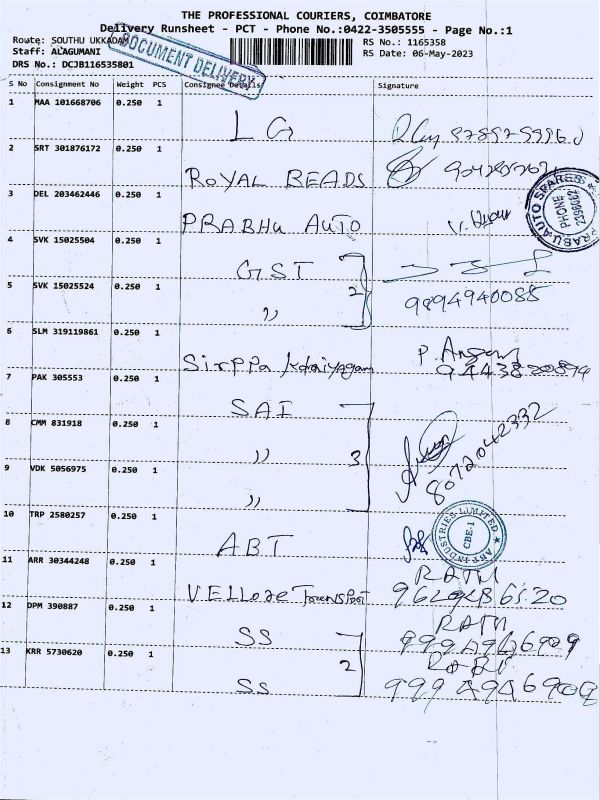 THE PROFESSIONAL COURIERS, COIMBATORE
Delivery Runsheet - PCT - Phone No.:0422-3505555 - Page No.:1
Route: SOUTHU UKKADAM
RS No.: 1165358
Staff: ALAGUMANI
RS Date: 06-May-2023
DRS No.: DCJB116535801
DOCUMENT DELIVERY
S No Consignment No Weight PCS Consignee Details Signature
1 MAA 101668706 0.250 1
LG
2 SRT 301876172 0.250 1
ROYAL BEADS
3 DEL 203462446 0.250 1
PRABHU AUTO
PRABU AUTO SPARES
PHONE
2396062
4 SVK 15025504 0.250 1
GST
5 SVK 15025524 0.250 1
2
9894940088
"
6 SLM 319119861 0.250 1
Sirppa
7 PAK 305553 0.250 1
SAI
8 CMM 831918 0.250 1
"
3
8072042332
9 VDK 5056975 0.250 1
"
10 TRP 2580257 0.250 1
ABT
ABT INDUSTRIES LIMITED
CBE-1
11 ARR 30344248 0.250 1
VELLore Transport
12 DPM 390887 0.250 1
SS
13 KRR 5730620 0.250 1
2
SS